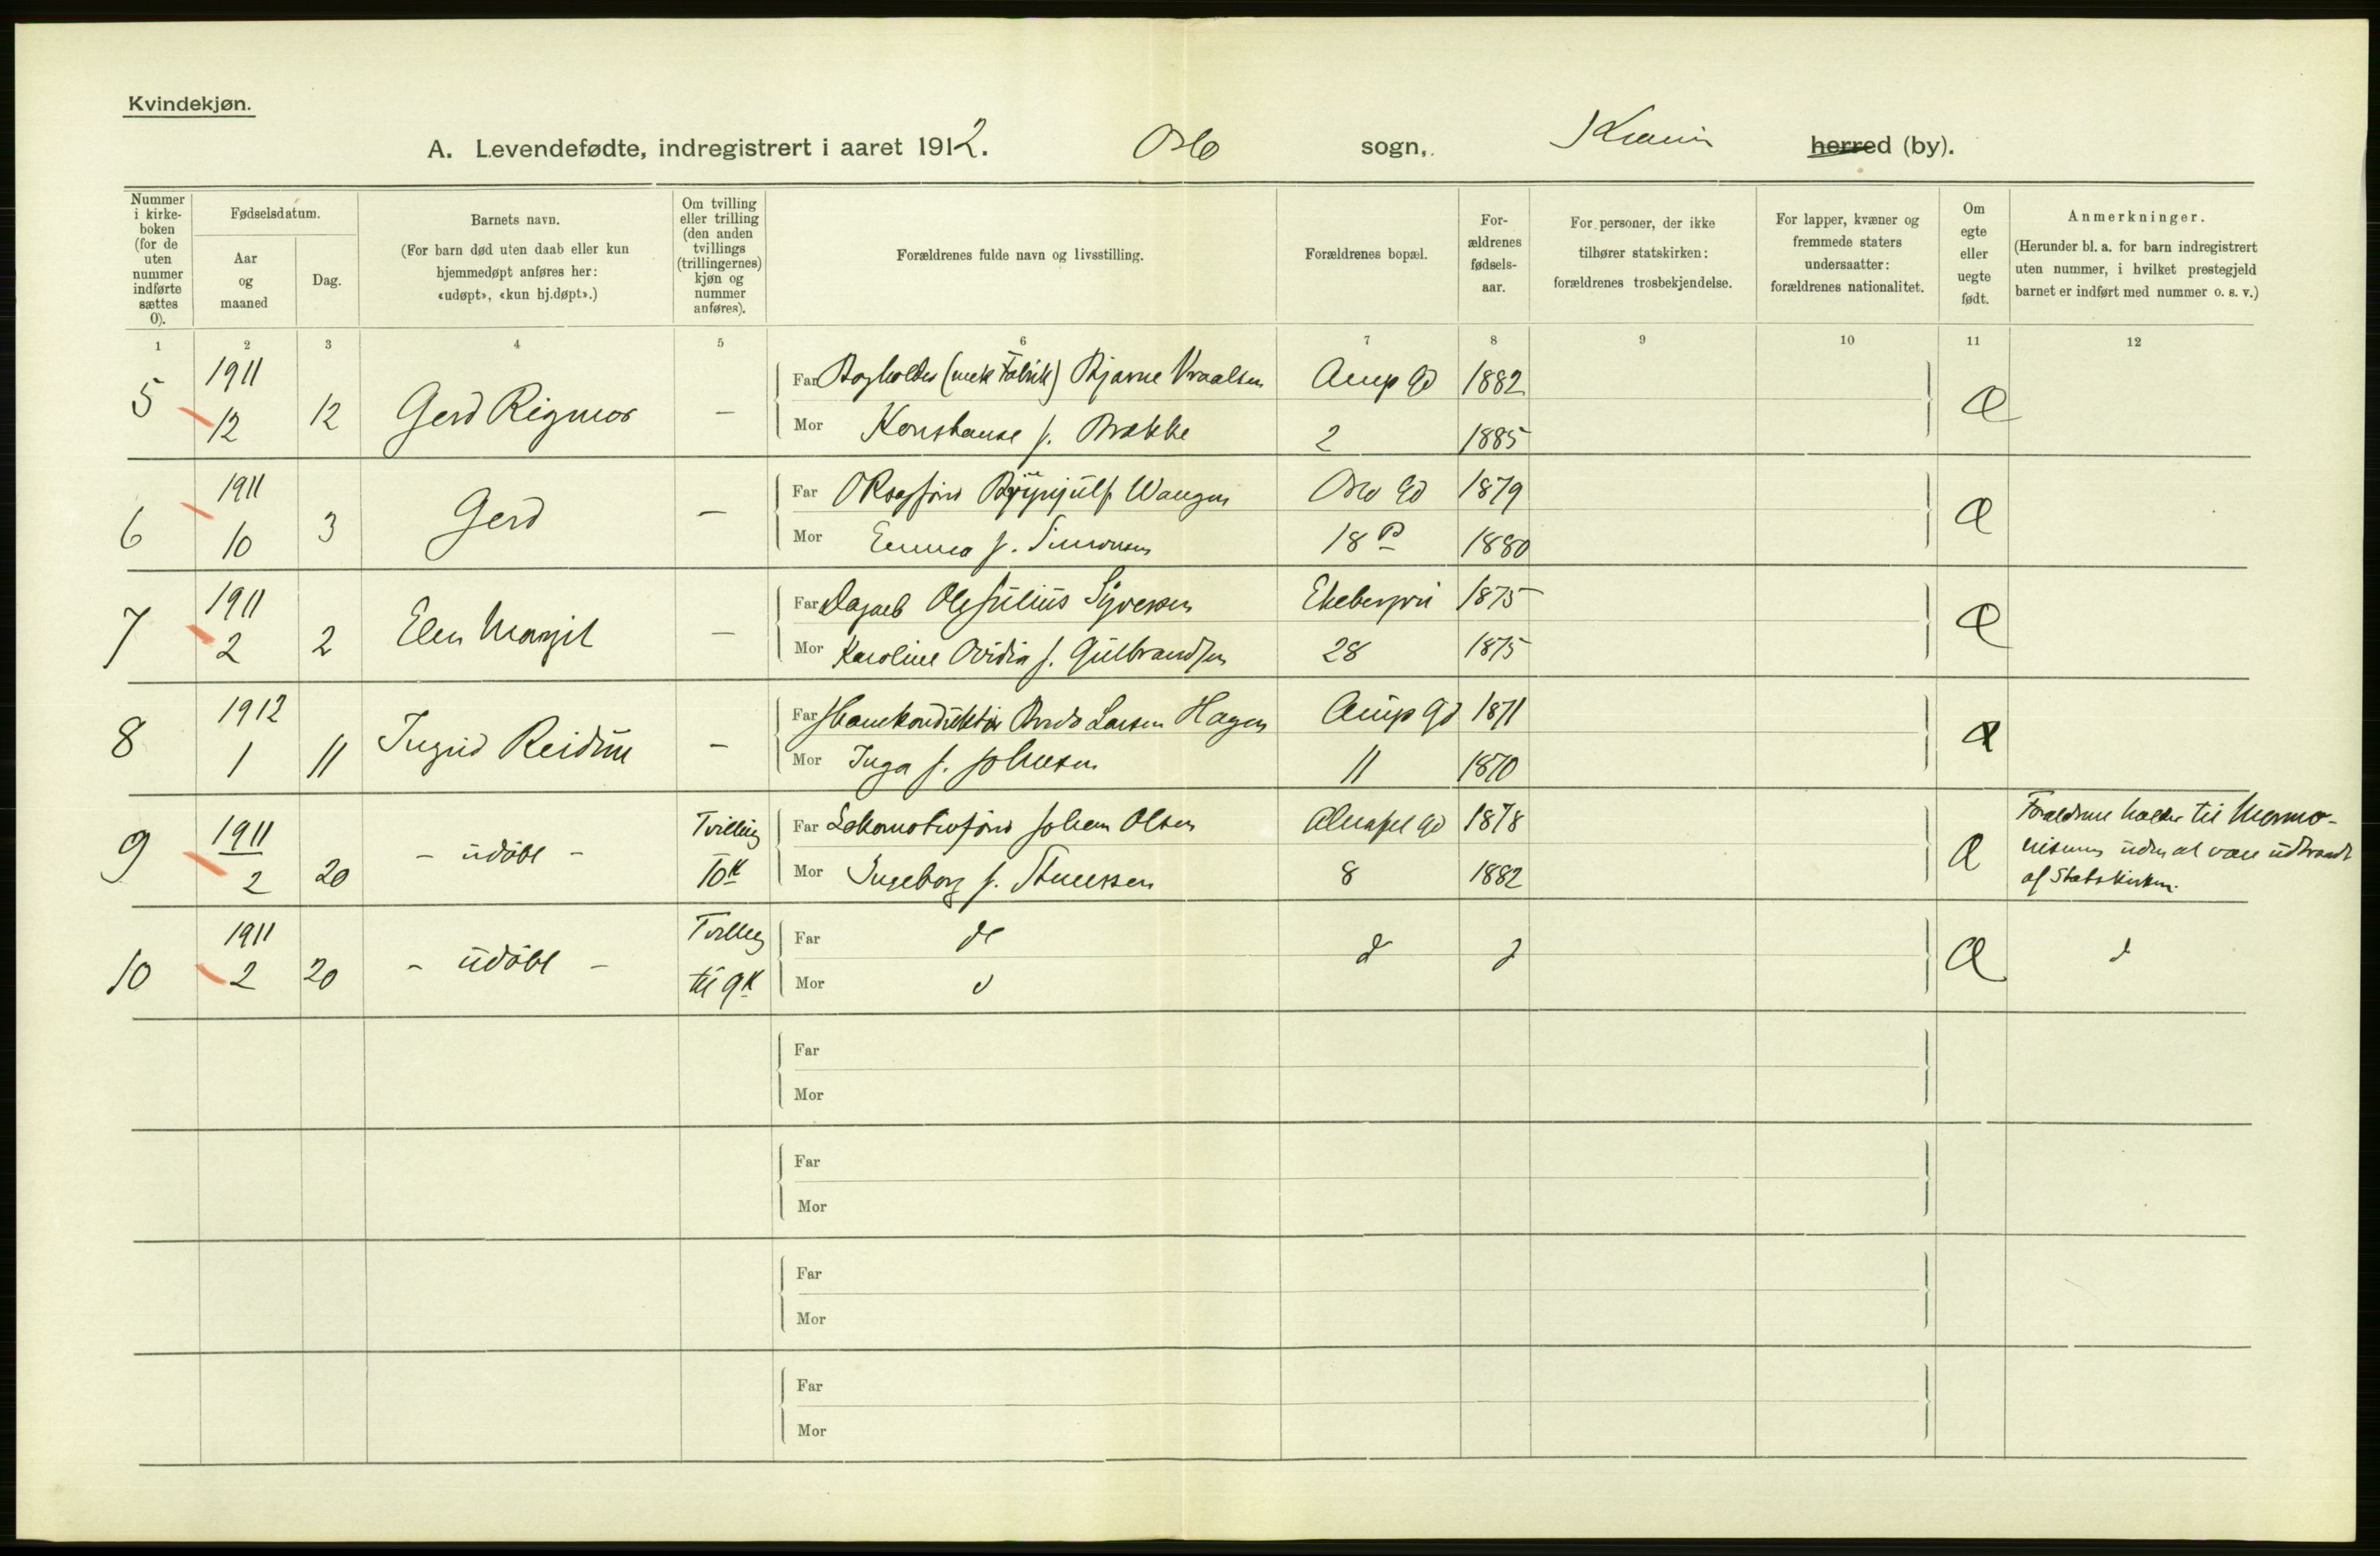 Kvindekjøn.
A. Levendefødte, indregistrert i aaret 1912. Oslo sogn, Kristiania herred (by).
Nummer i kirkeboken (for de uten nummer indførte sættes 0).
Fødselsdatum.
Aar og maaned
Dag.
Barnets navn.
(For barn død uten daab eller kun hjemmedøpt anføres her: «udøpt», «kun hj.døpt».)
Om tvilling eller trilling (den anden tvillings (trillingernes) kjøn og nummer anføres).
Forældrenes fulde navn og livsstilling.
Forældrenes bopæl.
Forældrenes fødselsaar.
For personer, der ikke tilhører statskirken: forældrenes trosbekjendelse.
For lapper, kvæner og fremmede staters undersaatter: forældrenes nationalitet.
Om egte eller uegte født.
Anmerkninger.
(Herunder bl. a. for barn indregistrert uten nummer, i hvilket prestegjeld barnet er indført med nummer o. s. v.)
1 2 3 4 5 6 7 8 9 10 11 12
5 1911 12 12 Gerd Rigmor —
Far Bogholder (mek Fabrik) Bjarne 1882
Mor Konstanse f. Brække 2 1885
6 1911 10 3 Gerd —
Far Brynjulf Wangen Oslo Gd 1879
Mor Emma f. Simonsen 18 B 1880
7 1911 2 2 Elen Margit —
Far Ole Julius Syversen Ekebergvei 1875
Mor Karoline Ovidia f. Gulbrandsen 28 1875
8 1912 1 11 Ingrid Reidun —
Far Larsen Hagen 1871
Mor Inga f. Johnsen 11 1870
9 1911 2 20 - udøbt - Tvilling 10K
Far Lokomotivfører Johan Olsen Gd 1878
Mor Ingeborg f. 8 1882
Forældrene holder til Mormo-
nismen uden at være udtraadt
af Statskirken.
10 1911 2 20 - udøbt - Tvilling til 9K
Far do
Mor
Far
Mor
Far
Mor
Far
Mor
Far
Mor